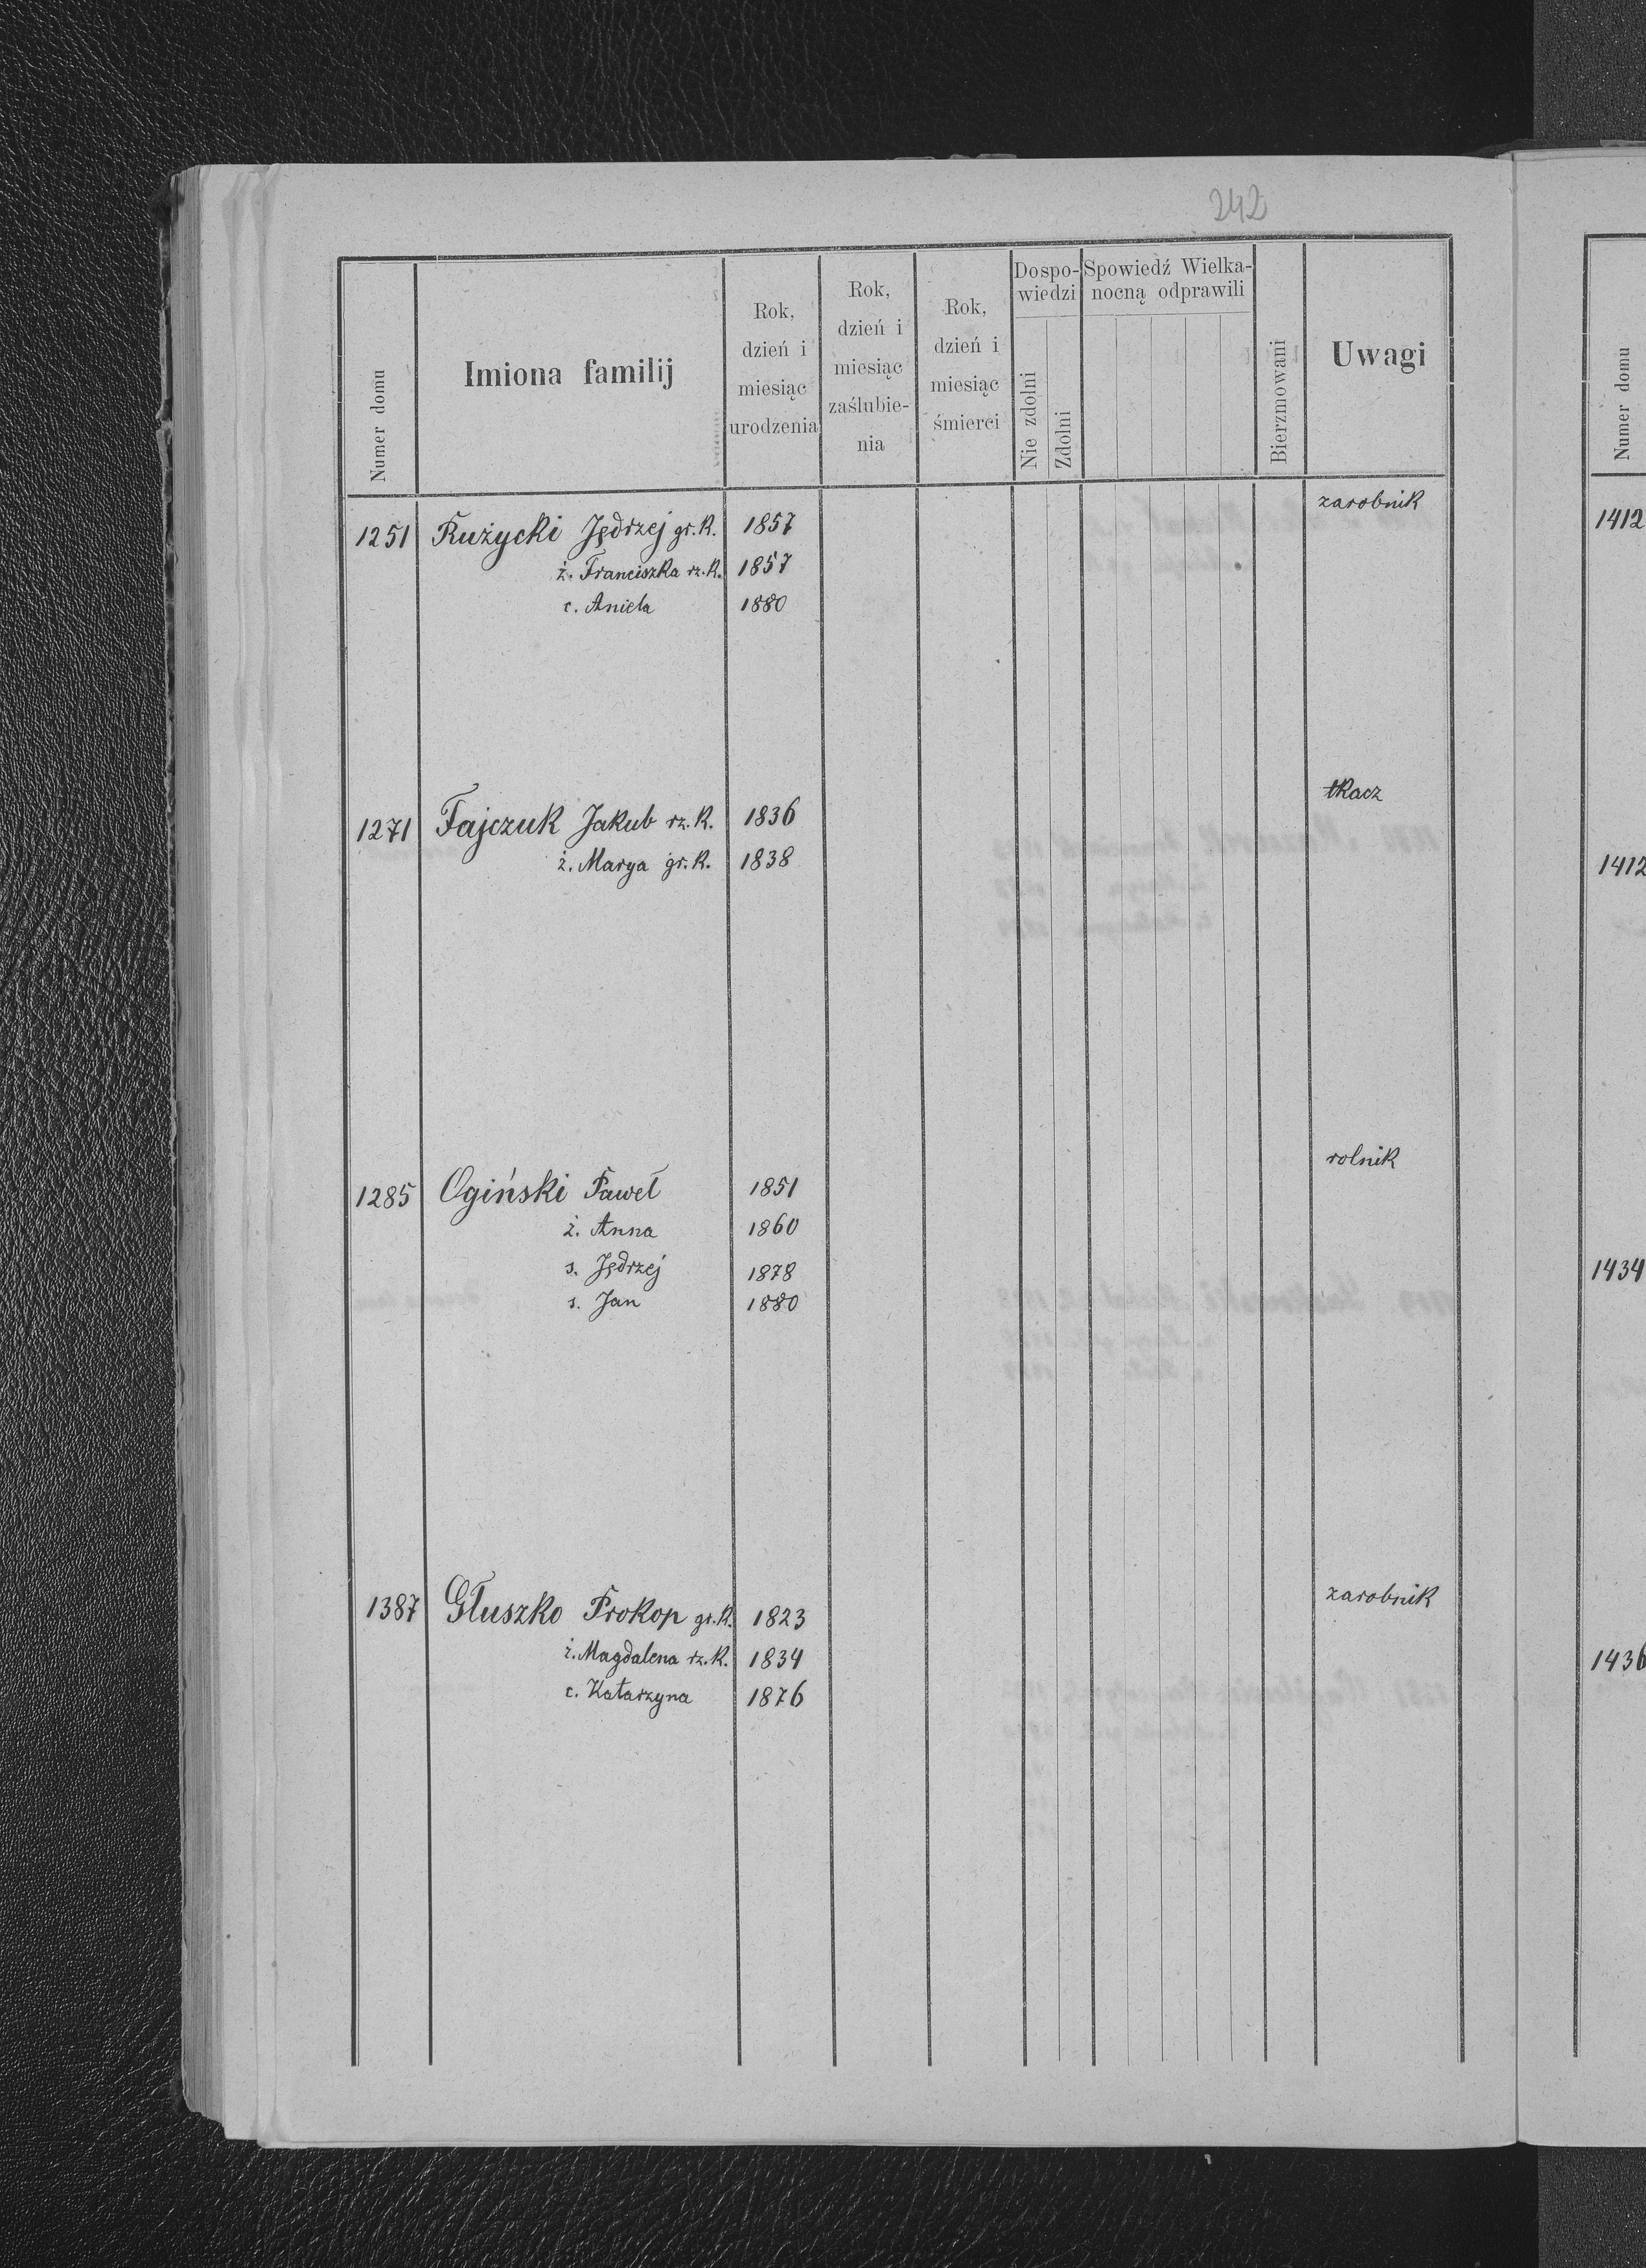 242
Numer domu
Imiona familij
Rok,
dzień i
miesiąc
urodzenia
Rok,
dzień i
miesiąc
zaślubie-
nia
Rok,
dzień i
miesiąc
śmierci
Dospo-
wiedzi
Nie zdolni
Zdolni
Spowiedź Wielka-
nocną odprawili
Bierzmowani
Uwagi
zarobnik
1251 Rużycki Jędrzej gr.k. 1857
ż. Franciszka rz.k. 1857
c. Aniela 1880
tkacz
1271 Fajczuk Jakub rz.k. 1836
ż. Marya gr.k. 1838
rolnik
1285 Ogiński Paweł 1851
ż. Anna 1860
s. Jędrzej 1878
s. Jan 1880
1387 Głuszko Prokop gr.k. 1823 zarobnik
ż. Magdalena rz.k. 1834
c. Katarzyna 1876
Numer domu
1412
1412
1434
1436